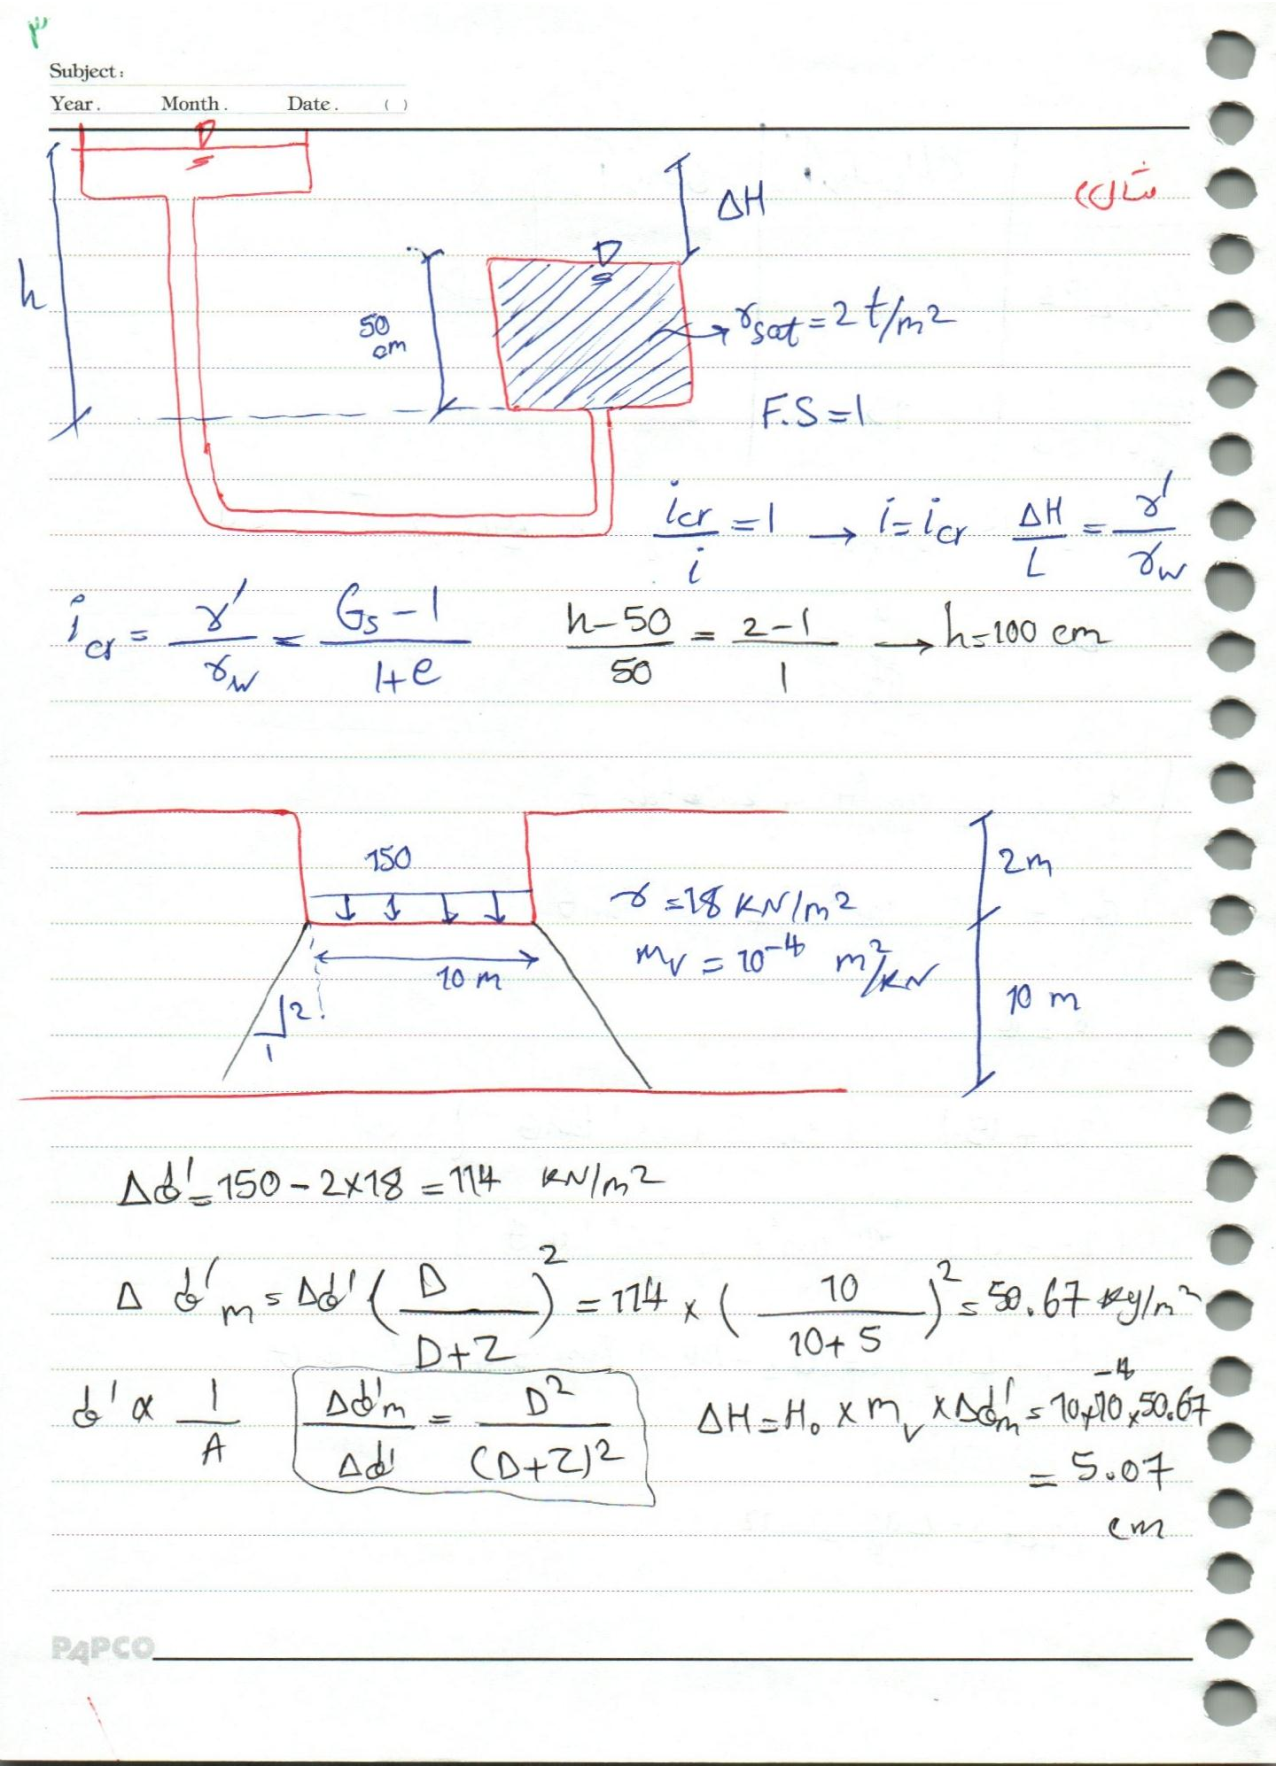 ۳
Subject:
Year. Month. Date. ( )
مثال))
h
ΔH
50 cm
γsat = 2 t/m2
F.S = 1
icr/i = 1 → i = icr ΔH/L = γ'/γw
icr = γ'/γw = Gs - 1/1+e h-50/50 = 2-1/1 → h = 100 cm
150
2 m
γ = 18 KN/m2
mv = 10^-4 m²/KN
10 m
10 m
2
1
Δσ' = 150 - 2×18 = 114 KN/m2
Δσ'm = Δσ' (D/D+Z)² = 114 × (10/10+5)² = 50.67 Kg/m²
σ' ∝ 1/A Δσ'm/Δσ' = D²/(D+Z)² ΔH = H₀ × mv × Δσ'm = 10×10^-4×50.67
= 5.07
cm
PAPCO